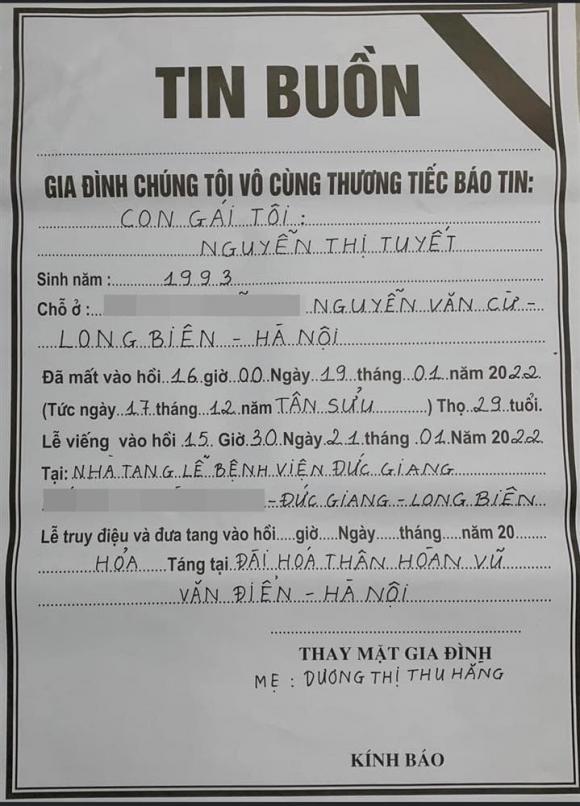 TIN BUỒN
GIA ĐÌNH CHÚNG TÔI VÔ CÙNG THƯƠNG TIẾC BÁO TIN:
CON GÁI TÔI:
NGUYỄN THỊ TUYẾT
Sinh năm : 1993
Chỗ ở : NGUYỄN VĂN CỪ -
LONG BIÊN - HÀ NỘI
Đã mất vào hồi 16 giờ 00 Ngày 19 tháng 01 năm 2022
(Tức ngày 17 tháng 12 năm TÂN SỬU ) Thọ 29 tuổi.
Lễ viếng vào hồi 15 Giờ 30 Ngày 21 tháng 01 Năm 2022
Tại: NHÀ TANG LỄ BỆNH VIỆN ĐỨC GIANG
- ĐỨC GIANG - LONG BIÊN
Lễ truy điệu và đưa tang vào hồi....giờ....Ngày......tháng.....năm 20......
HỎA Táng tại ĐÀI HOÁ THÂN HOÀN VŨ
VĂN ĐIỂN - HÀ NỘI
THAY MẶT GIA ĐÌNH
MẸ : DƯƠNG THỊ THU HẰNG
KÍNH BÁO